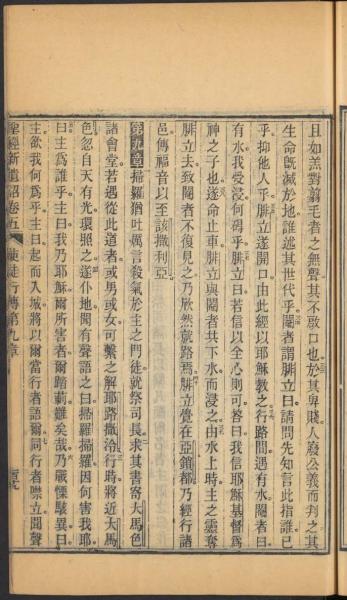 且如羔對翦毛者之無聲其不啟口也於其卑賤人廢公義而判之其
生命旣滅於地誰述其世代乎閹者謂腓立曰請問先知言此指誰己
乎抑他人乎腓立遂開口由此經以耶穌教之行路間遇有水閹者曰
有水我受浸何碍乎腓立曰若信以全心則可答曰我信耶穌基督爲
神之子也遂命止車腓立與閹者共下水而浸之由水上時主之靈奪
腓立去致閹者不復見之乃欣然就路焉腓立覺在亞鎖都乃經行諸
邑傳福音以至該撒利亞
第九章掃羅猶吐厲言殺氣於主之門徒就祭司長求其書寄大馬色
諸會堂若遇從此道者或男或女可繫之解耶路撒冷行時將近大馬
色忽自天有光環照之遂仆地聞有聲語之曰掃羅掃羅因何害我耶
曰主爲誰乎主曰我乃耶穌爾所害者爾踏刺難矣哉乃嚴慄駭異曰
主欲我何爲乎主曰起而入城將以爾當行者語爾同行者嘿立聞聲
聖經新遺詔卷五 使徒行傳第九章